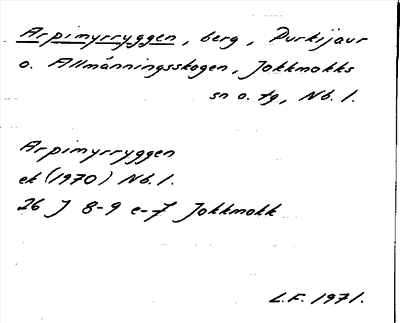 Arpimyrryggen, berg, Purkijaur
o. Allmänningsskogen, Jokkmokks
sn o. tg, Nb. l.
Arpimyrryggen
ek (1970) Nb. l.
26 J 8-9 e-f Jokkmokk
L.F. 1971.